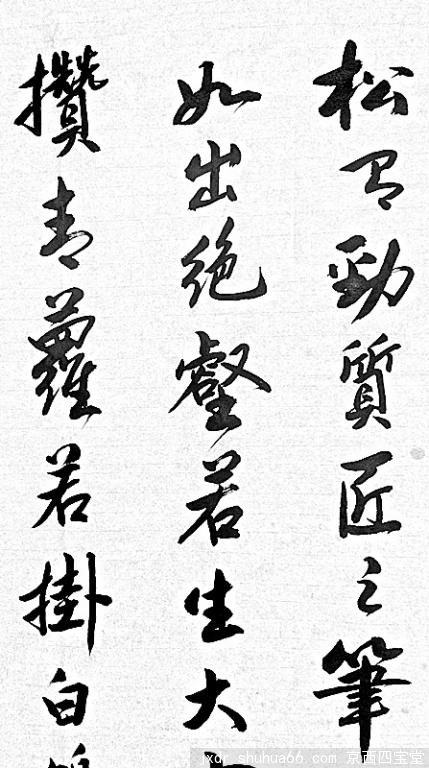 松有勁質匠之筆
如出絶壑若生大
攢青蘿若掛白
jxdr.shuhua66.com 京西四宝堂